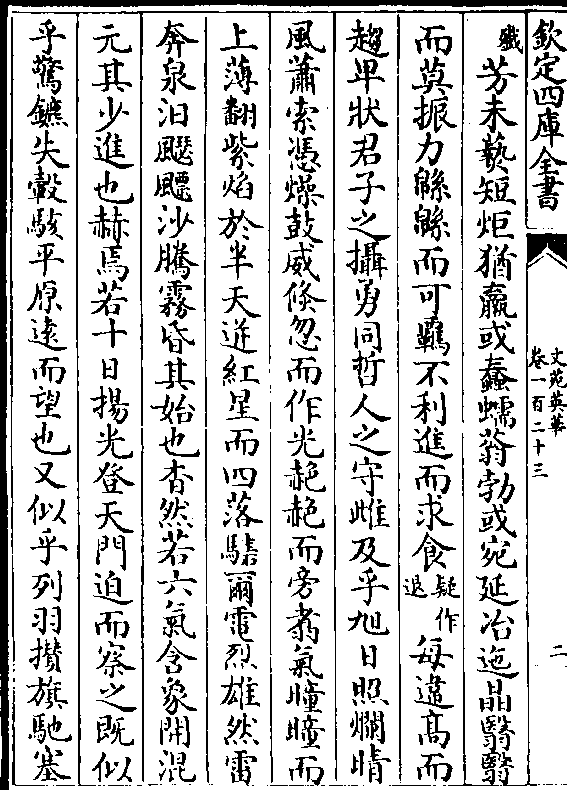 欽定四庫全書
文苑英華
卷一百二十三
二
殲芳未蓺短炬猶羸或蠢蠕蓊勃或宛延冶迤晶翳翳
而莫振力緜緜而可羈不利進而求食疑作退每違高而
趨卑狀君子之攝勇同哲人之守雌及乎旭日照爛晴
風蕭索憑燥鼓威倏忽而作光赩赩而旁翥氣曈曈而
上薄翻紫焰於半天迸紅星而四落騞爾電烈雄然雷
奔泉汩飇飄沙騰霧昏其始也杳然若六氣含象開混
元其少進也赫焉若十日揚光登天門迫而察之既似
乎驚鑣失轂駭平原遠而望也又似乎列羽攢旗馳塞